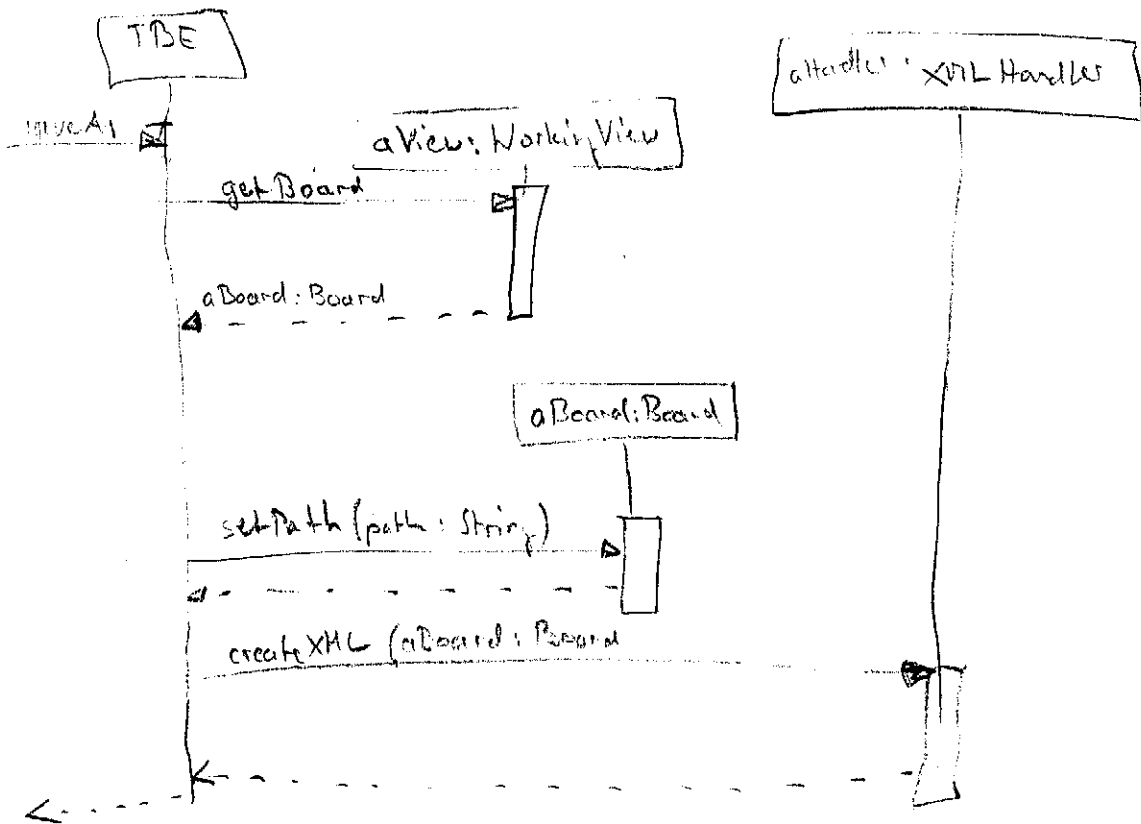 TBE
aHandler: XMLHandler
saveAs
aView: WorkingView
getBoard
aBoard: Board
aBoard: Board
setPath (path: String)
createXML (aBoard: Board